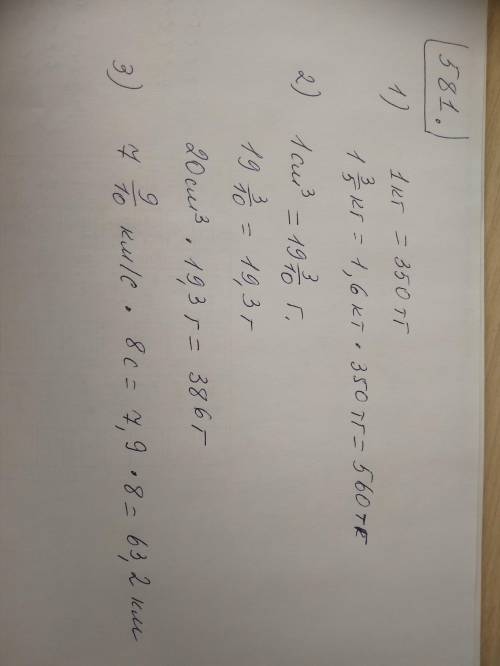 581.
1) 1кг = 350тг
1 3/5 кг = 1,6кг · 350тг = 560тг
2) 1см³ = 19 3/10 г.
19 3/10 = 19,3г
20см³ · 19,3г = 386г
3) 7 9/10 км/с · 8с = 7,9 · 8 = 63,2км